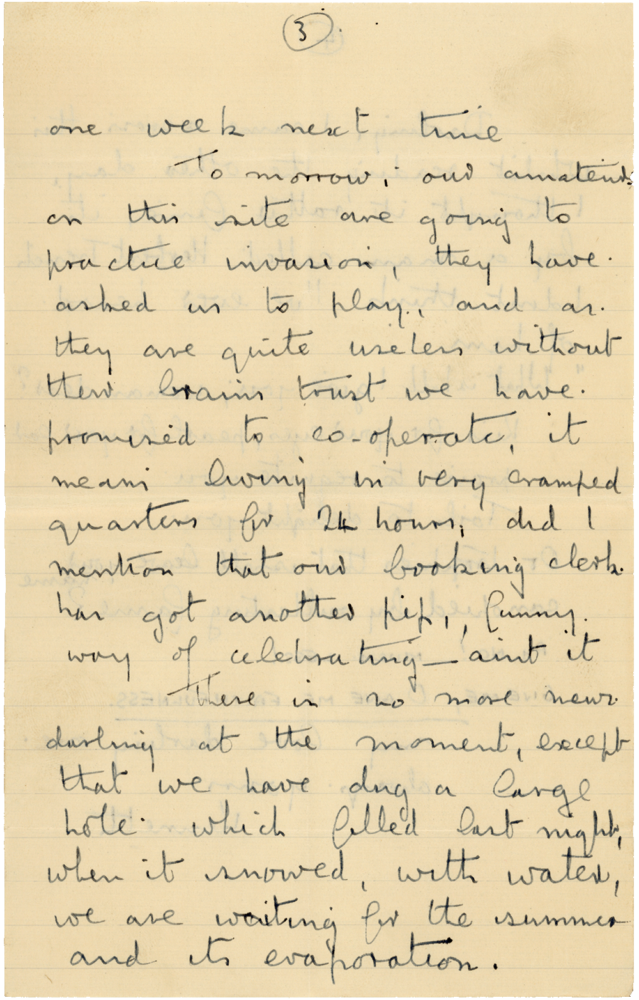 3
one week next time
To morrow, our amateurs
on this site are going to
practice invasion, they have
asked us to play, and as
they are quite useless without
their brains trust we have
promised to co-operate, it
means living in very cramped
quarters for 24 hours, did I
mention that our booking clerk
has got another pip, funny
way of celebrating – aint it
There is no more news
darling at the moment, except
that we have dug a large
hole which filled last night,
when it snowed, with water,
we are waiting for the summer
and its evaporation.